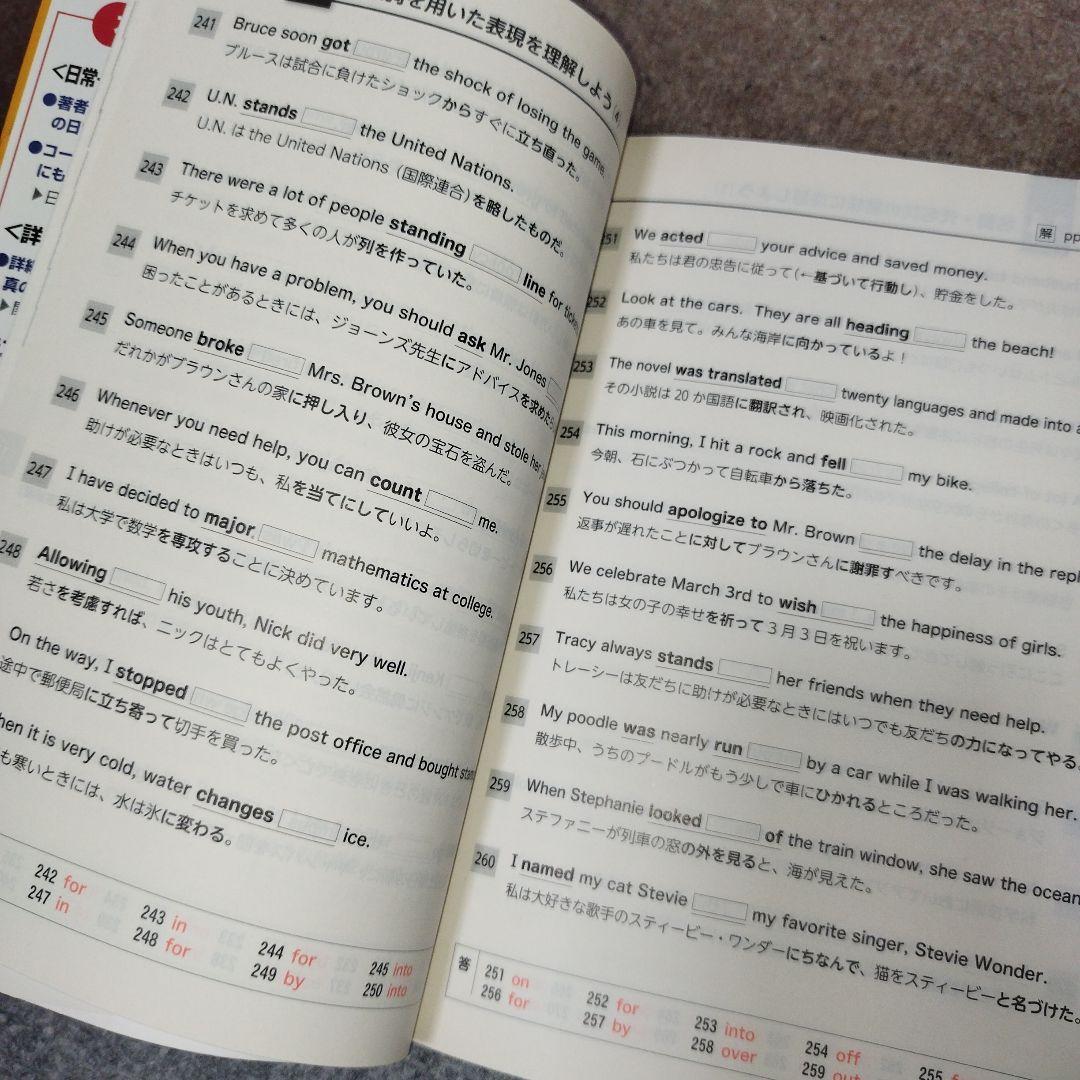 を用いた表現を理解しよう
241 Bruce soon got the shock of losing the game.
ブルースは試合に負けたショックからすぐに立ち直った。
242 U.N. stands the United Nations.
U.N. は the United Nations（国際連合）を略したものだ。
243 There were a lot of people standing line for
チケットを求めて多くの人が列を作っていた。
244 When you have a problem, you should ask Mr. Jones
困ったことがあるときには、ジョーンズ先生にアドバイスを求めた
245 Someone broke Mrs. Brown's house and stole her
だれかがブラウンさんの家に押し入り、彼女の宝石を盗んだ。
246 Whenever you need help, you can count me.
助けが必要なときはいつも、私を当てにしていいよ。
247 I have decided to major mathematics at college.
私は大学で数学を専攻することに決めています。
248 Allowing his youth, Nick did very well.
若さを考慮すれば、ニックはとてもよくやった。
On the way, I stopped the post office and bought
途中で郵便局に立ち寄って切手を買った。
hen it is very cold, water changes ice.
も寒いときには、水は氷に変わる。
242 for 243 in 244 for 245 into
247 in 248 for 249 by 250 into
<日常
●著者
の日
●コー
にも
▶日
<詳
●詳細
真の
解 pp
251 We acted your advice and saved money.
私たちは君の忠告に従って(←基づいて行動し)、貯金をした。
252 Look at the cars. They are all heading the beach!
あの車を見て。みんな海岸に向かっているよ！
253 The novel was translated twenty languages and made into a
その小説は 20 か国語に翻訳され、映画化された。
254 This morning, I hit a rock and fell my bike.
今朝、石にぶつかって自転車から落ちた。
255 You should apologize to Mr. Brown the delay in the repl
返事が遅れたことに対してブラウンさんに謝罪すべきです。
256 We celebrate March 3rd to wish the happiness of girls.
私たちは女の子の幸せを祈って 3 月 3 日を祝います。
257 Tracy always stands her friends when they need help.
トレーシーは友だちに助けが必要なときにはいつでも友だちの力になってやる。
258 My poodle was nearly run by a car while I was walking her.
散歩中、うちのプードルがもう少しで車にひかれるところだった。
259 When Stephanie looked of the train window, she saw the ocean
ステファニーが列車の窓の外を見ると、海が見えた。
260 I named my cat Stevie my favorite singer, Stevie Wonder.
私は大好きな歌手のスティービー・ワンダーにちなんで、猫をスティービーと名づけた。
答 251 on 252 for 253 into 254 off 255
256 for 257 by 258 over 259 out